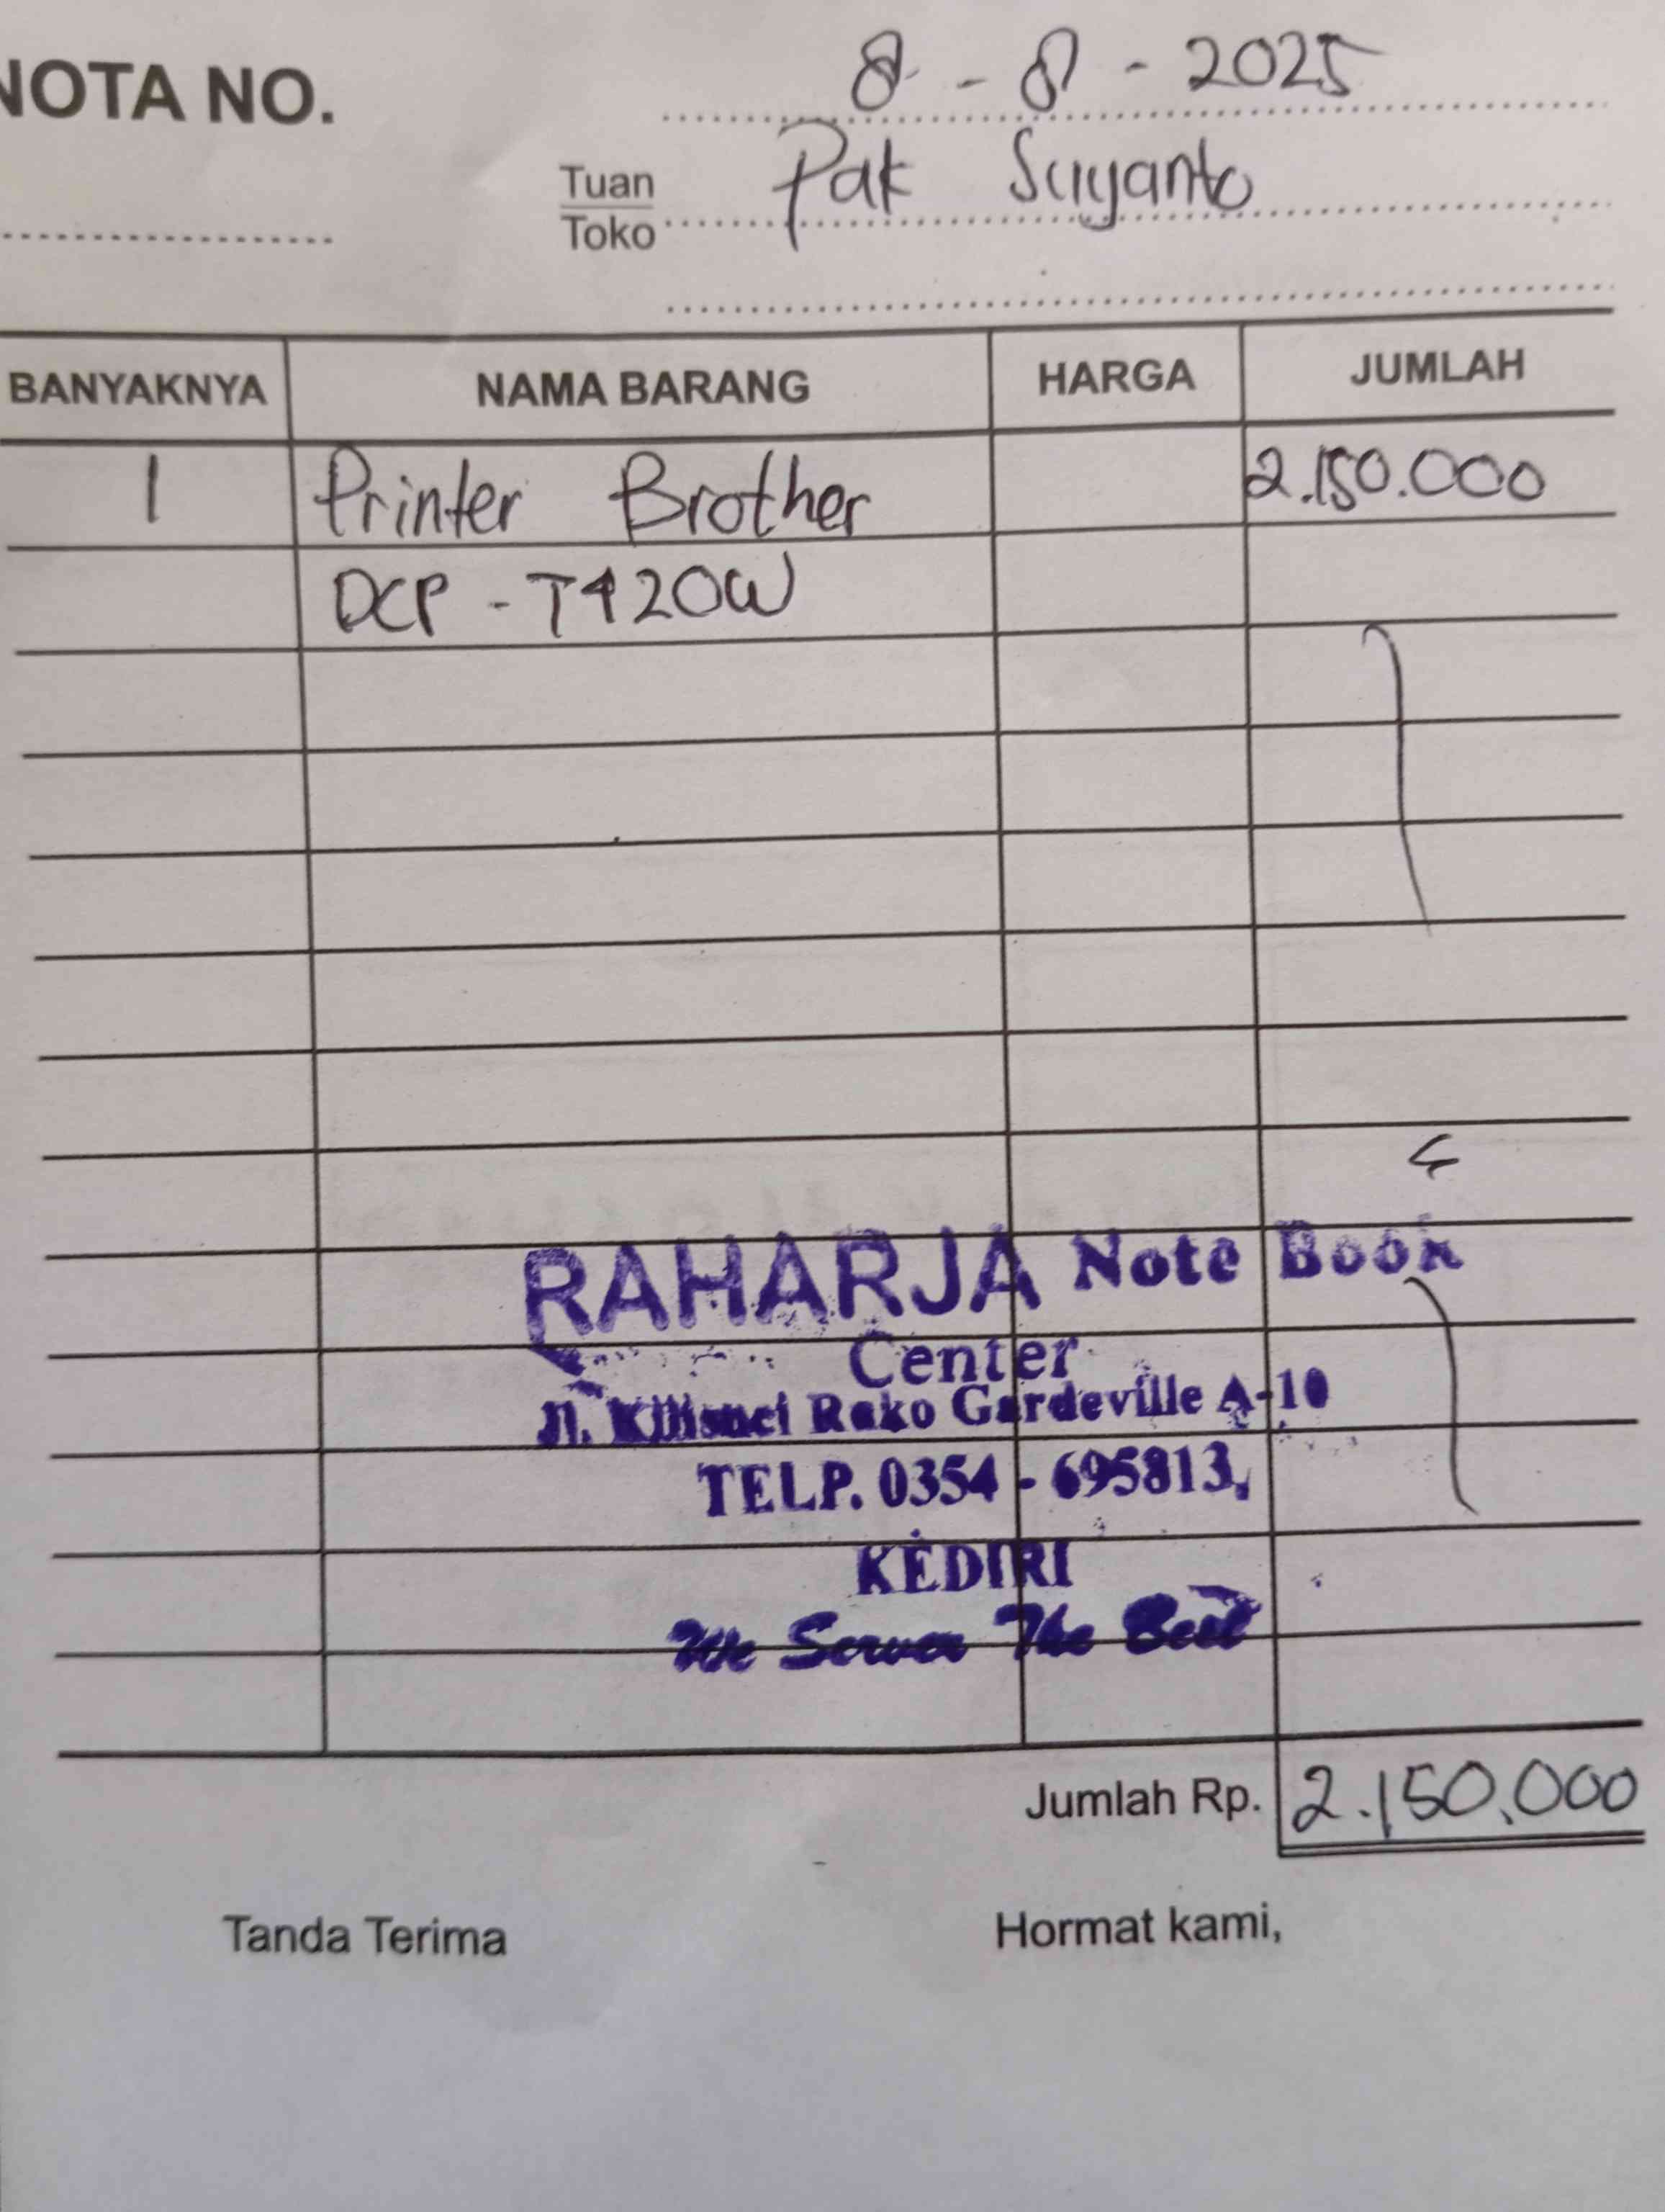 NOTA NO.
8 - 8 - 2025
Tuan
Toko
Pak Suyanto
BANYAKNYA NAMA BARANG HARGA JUMLAH
1 Printer Brother 2.150.000
DCP - T420W
RAHARJA Note Book
Center
Jl. Kilisuci Ruko Gardeville A-10
TELP. 0354 - 695813,
KEDIRI
We Server The Best
Jumlah Rp. 2.150.000
Tanda Terima Hormat kami,